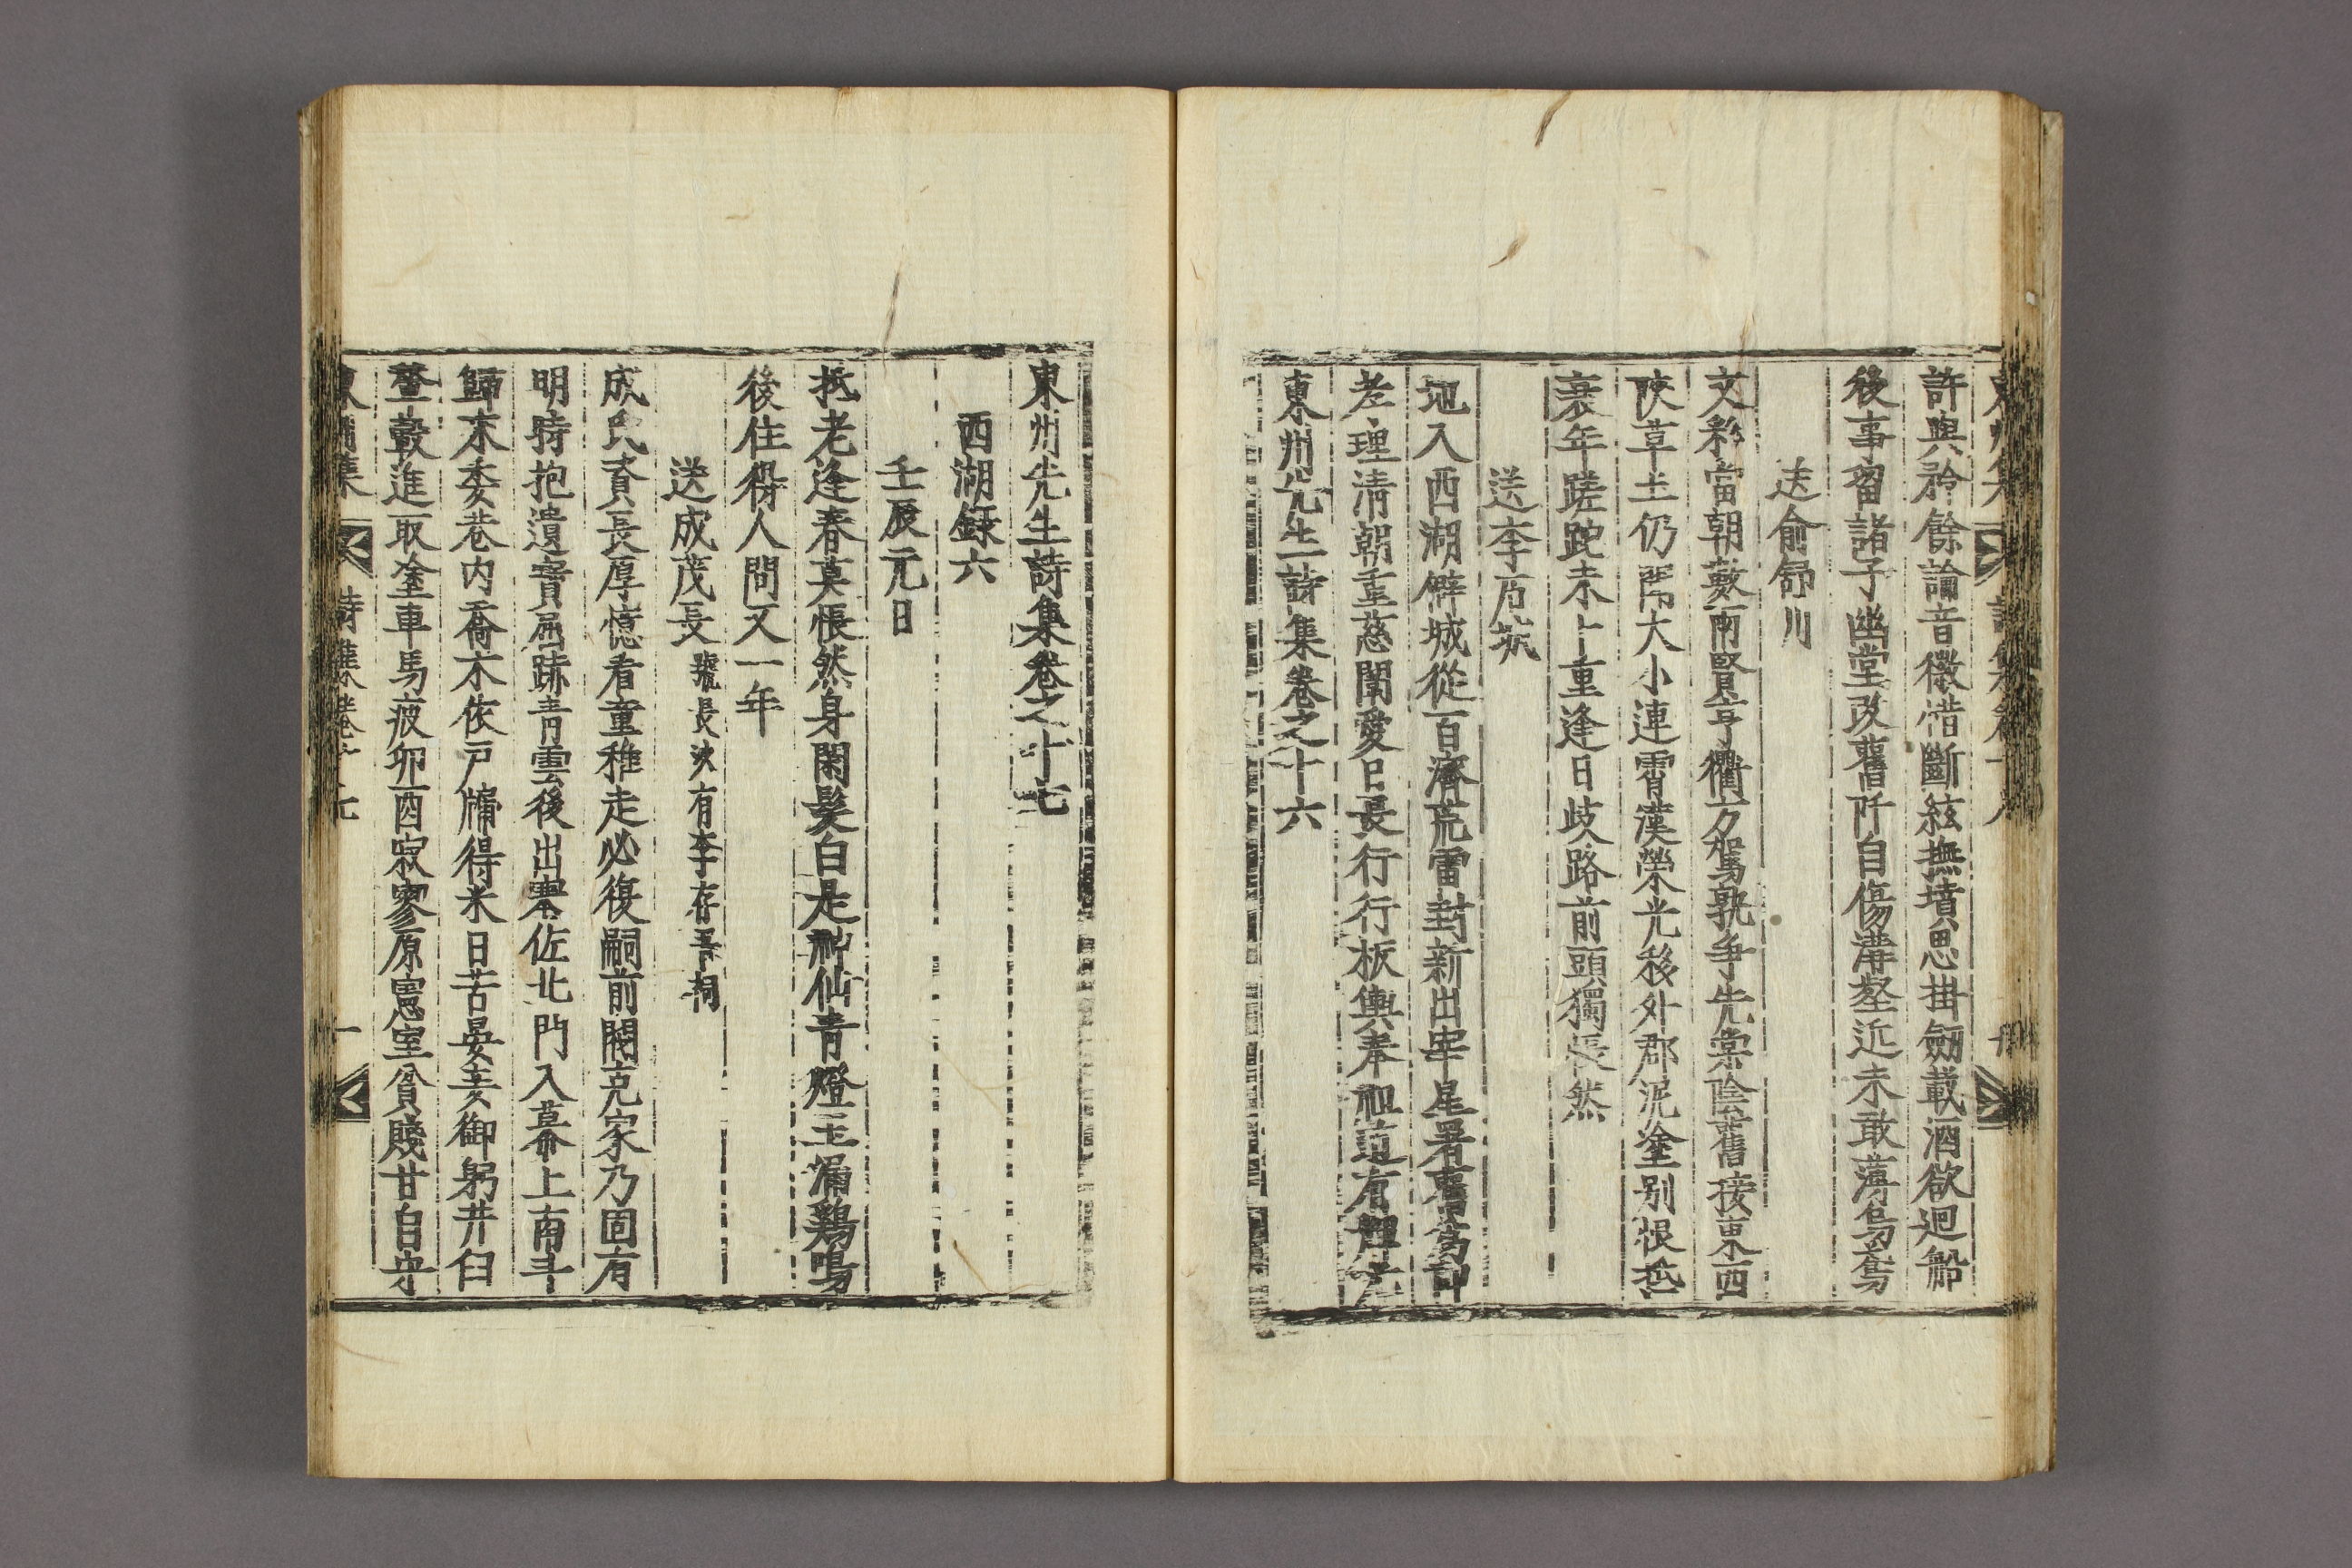 許與矜餘論音徽惜斷絃撫墳思掛劒載酒欲迴船
後事留諸子幽堂改舊阡自傷溝壑近未敢薄烏鳶
送俞舒川
文彩當朝數兩賢亨衢方駕孰爭先棠陰舊接東西
陜草土仍同大小連霄漢榮光移外郡泥塗別恨抵
衰年蹉跎未卜重逢日歧路前頭獨悵然
送李尼
地入西湖僻城從百濟荒雷封新出宰星署舊爲郞
孝理淸朝重慈闈愛日長行行板輿奉祖道有輝光
東州先生詩集卷之十六
東州先生詩集卷之十七
西湖錄六
壬辰元日
抵老逢春莫悵然身閑髮白是神仙靑燈玉漏鷄鳴
後住得人間又一年
送成茂長 號長浹有李存吾祠
成氏資長厚憶看童稚走必復嗣前閥克家乃固有
明時抱遺寶屈跡靑雲後出塞佐北門入幕上南斗
歸來委巷內喬木依戶牖得米日苦晏妻御躬井臼
聱轂進取塗車馬疲卯酉寂寥原憲室貧賤甘白守
東州集 詩集卷十七 一